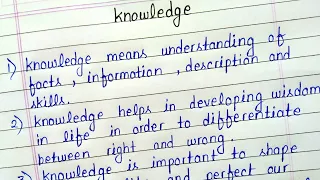 knowledge
1) knowledge means understanding of
facts, information, description and
skills.
2) knowledge helps in developing wisdom
in life in order to differentiate
between right and wrong.
knowledge is important to shape
and perfect our